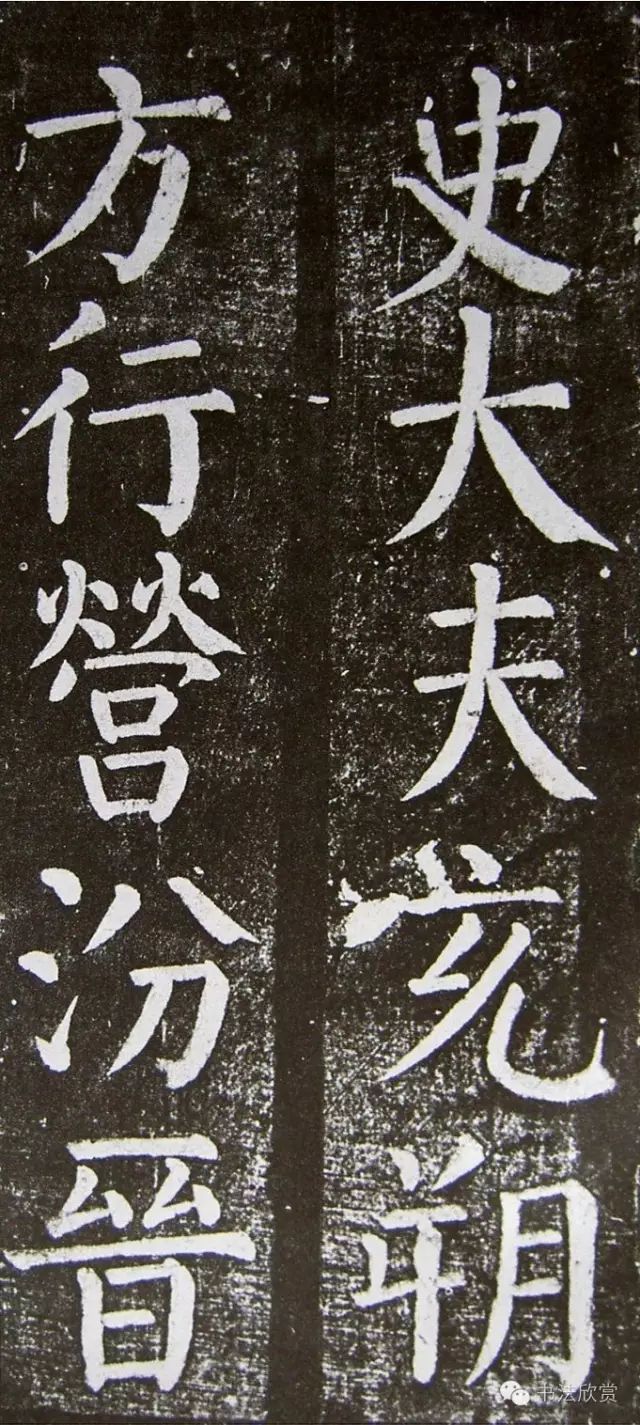 史大夫充朔
方行營汾晉
书法欣赏